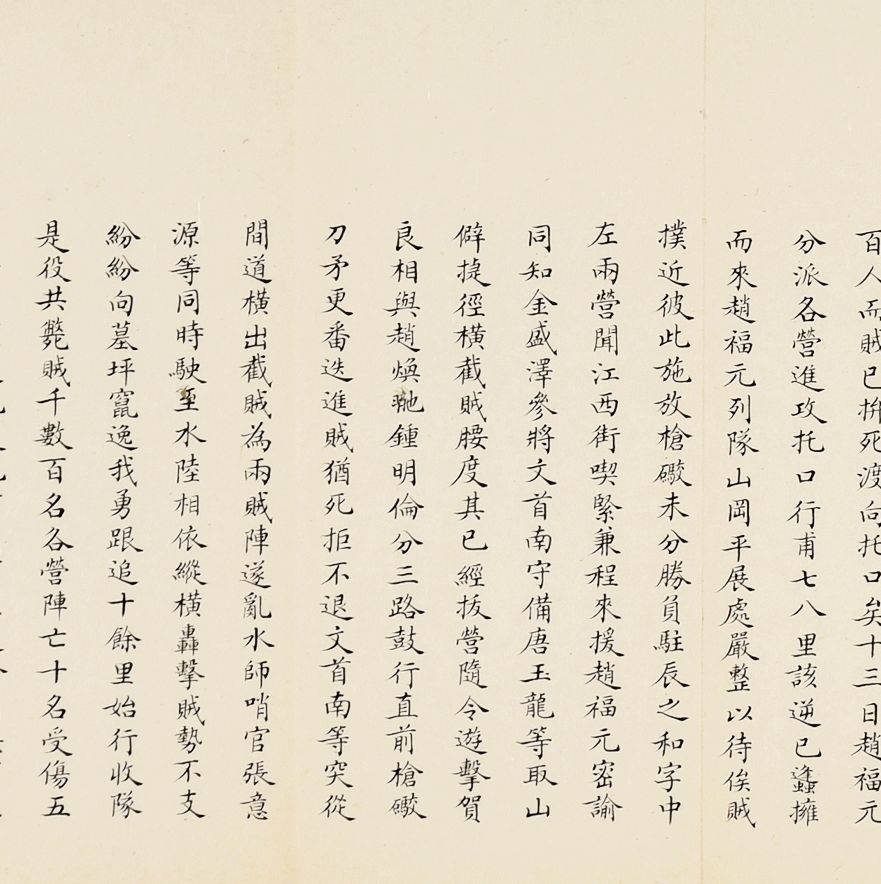 百人而賊已拚死渡向托口矣十三日趙福元
分派各營進攻托口行甫七八里該逆已蠭擁
而來趙福元列隊山岡平展處嚴整以待俟賊
撲近彼此施放槍礮未分勝負駐辰之和字中
左兩營聞江西街喫緊兼程來援趙福元密諭
同知金盛澤參將文首南守備唐玉龍等取山
僻捷徑橫截賊腰度其已經拔營隨令遊擊賀
良相與趙煥聎鍾明倫分三路鼓行直前槍礮
刀矛更番迭進賊猶死拒不退文首南等突從
間道橫出截賊為兩賊陣遂亂水師哨官張意
源等同時駛至水陸相依縱橫轟擊賊勢不支
紛紛向墓坪竄逸我勇跟追十餘里始行收隊
是役共斃賊千數百名各營陣亡十名受傷五